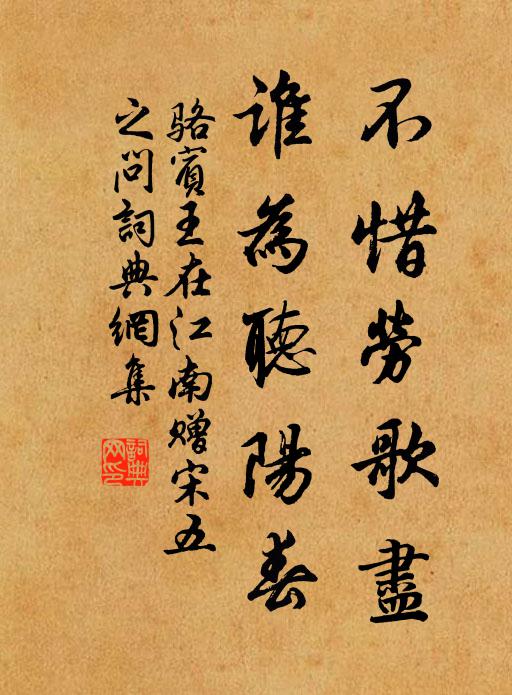 不惜勞歌盡
誰為聽陽春
駱賓王在江南赠宋五
之问詞典網集
詞典網印